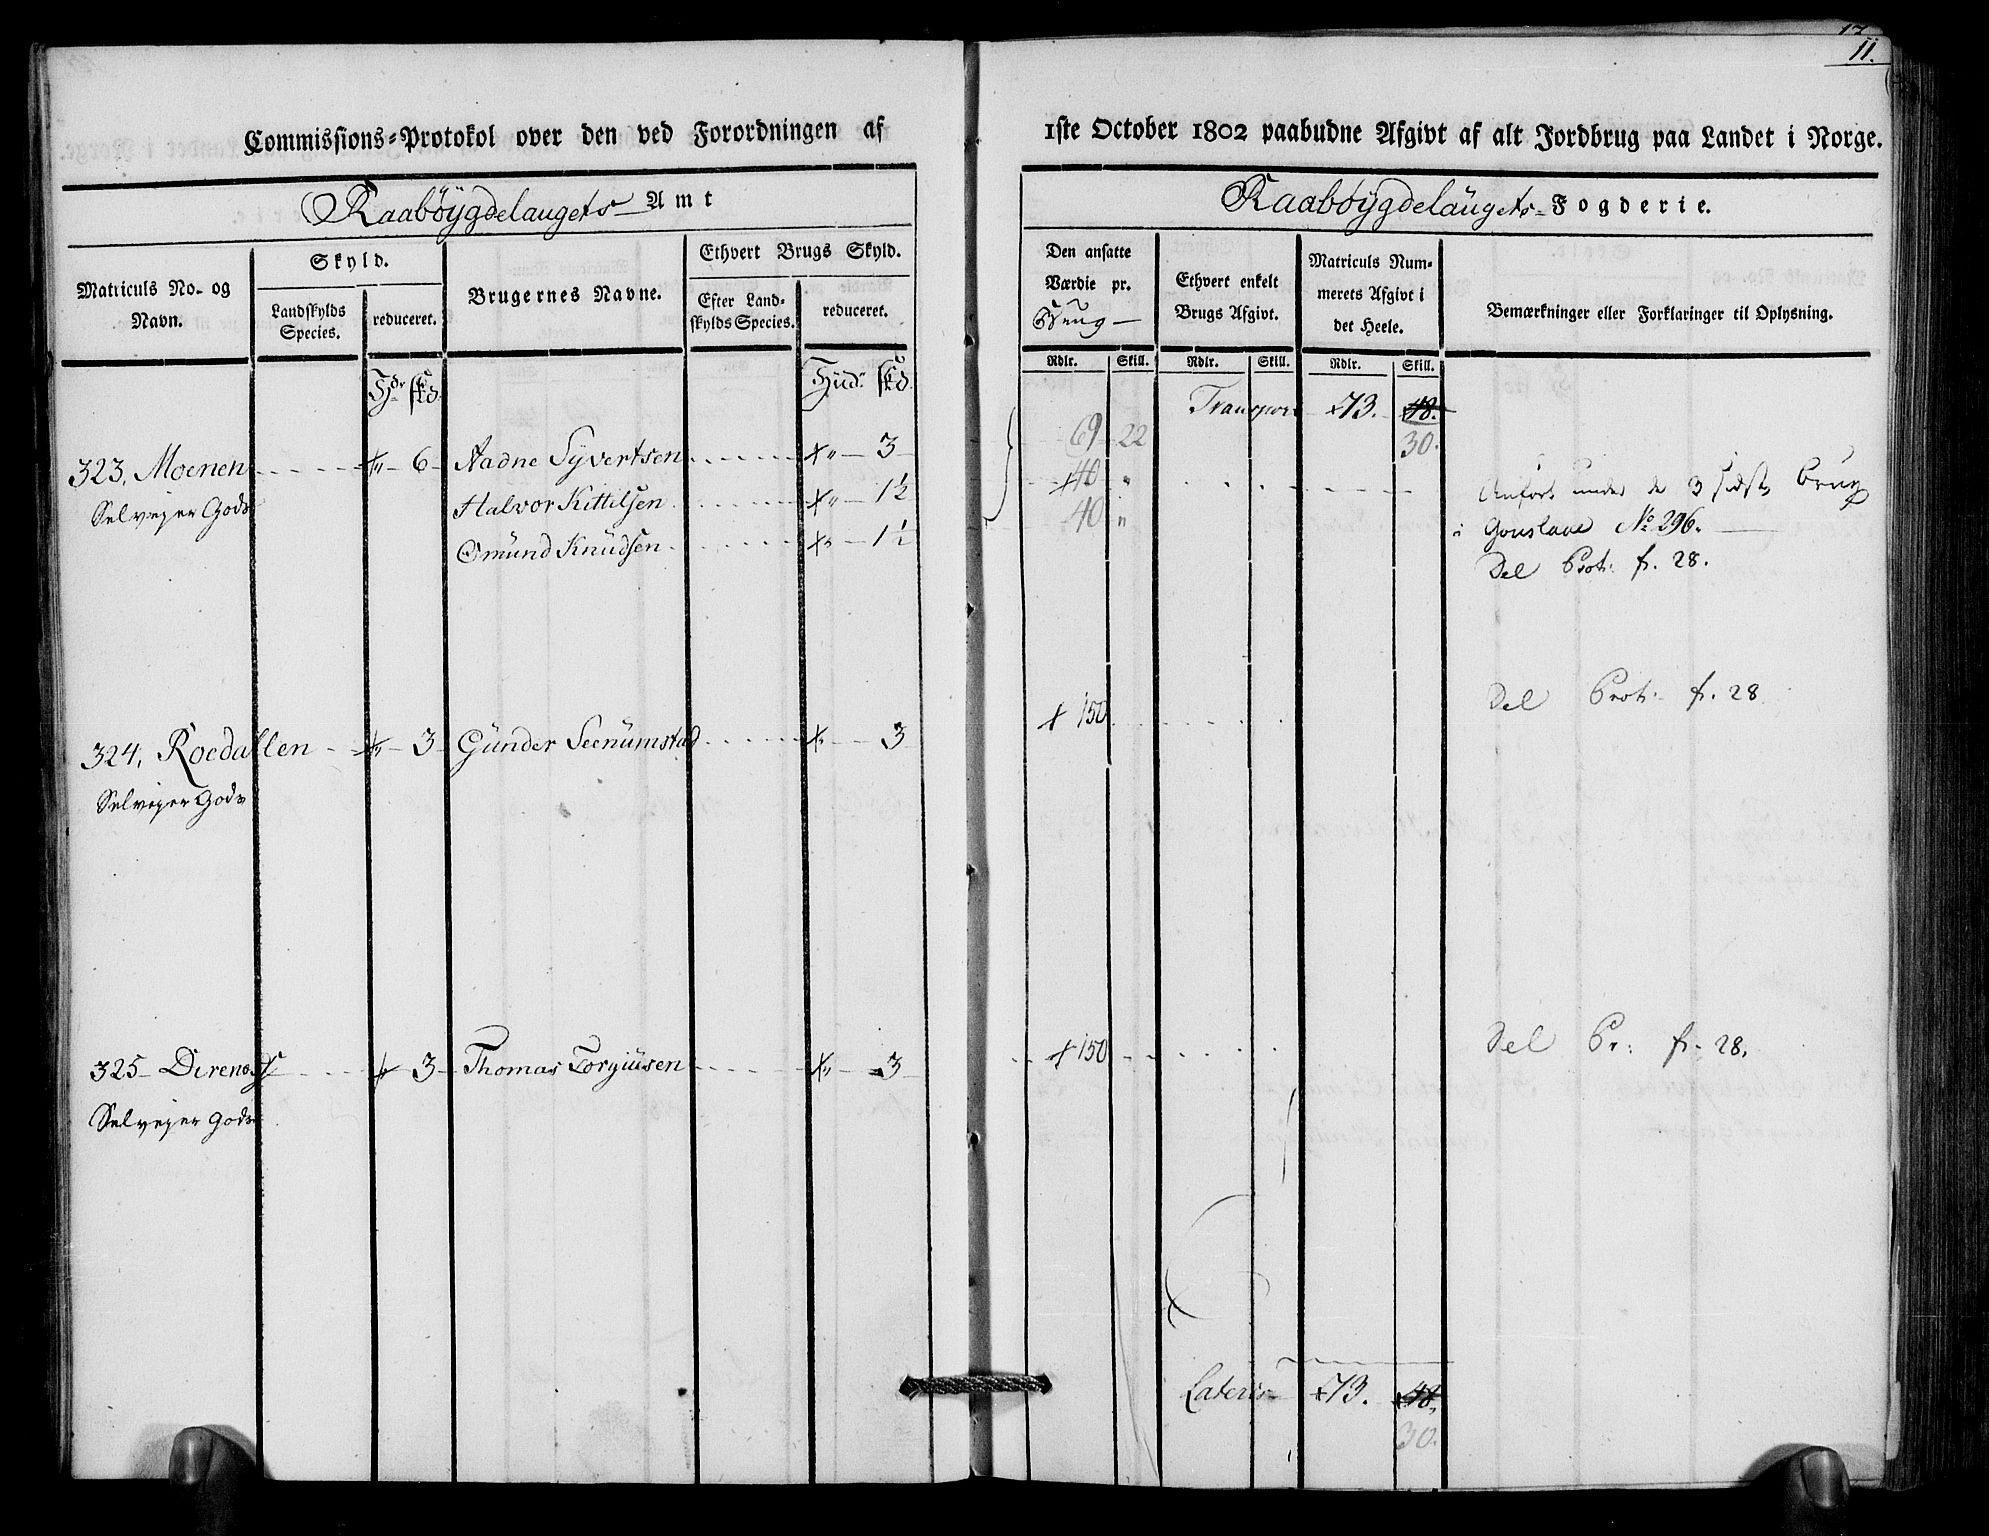 17
11.
Commissions-Protokol over den ved Forordningen af
1ste October 1802 paabudne Afgivt af alt Jordbrug paa Landet i Norge.
Raabøygdelaugets Amt
Raabøygdelaugets Fogderie.
Matriculs No. og Navn.
Skyld.
Landskylds Species.
reduceret.
Brugernes Navne.
Ethvert Brugs Skyld.
Efter Landskylds Species.
reduceret.
Den ansatte Værdie pr. Brug
Ethvert enkelt Brugs Afgivt.
Matriculs Nummerets Afgivt i det Heele.
Bemærkninger eller Forklaringer til Oplysning.
Rdlr. Skill. Rdlr. Skill. Rdlr. Skill.
Transport 73. 48.
30.
323, Moenen 6 Aadne Syvertsen 3 69 22
Selveyer Gods Halvor Kittilsen 1½ 40 "
Omund Knudsen 1½ 40 "
Anført under de 3 sidste Brug
i No 296.
Del Prot: fr. 28.
324, Roedallen 3 Gunder Seenumstad 3 150
Selveyer Gods
Del Prot: fr. 28
325 3 Thomas Torgiusen 3 150
Selveyer Gods
Del Pr: fr. 28.
Lateris 73. 48.
30.